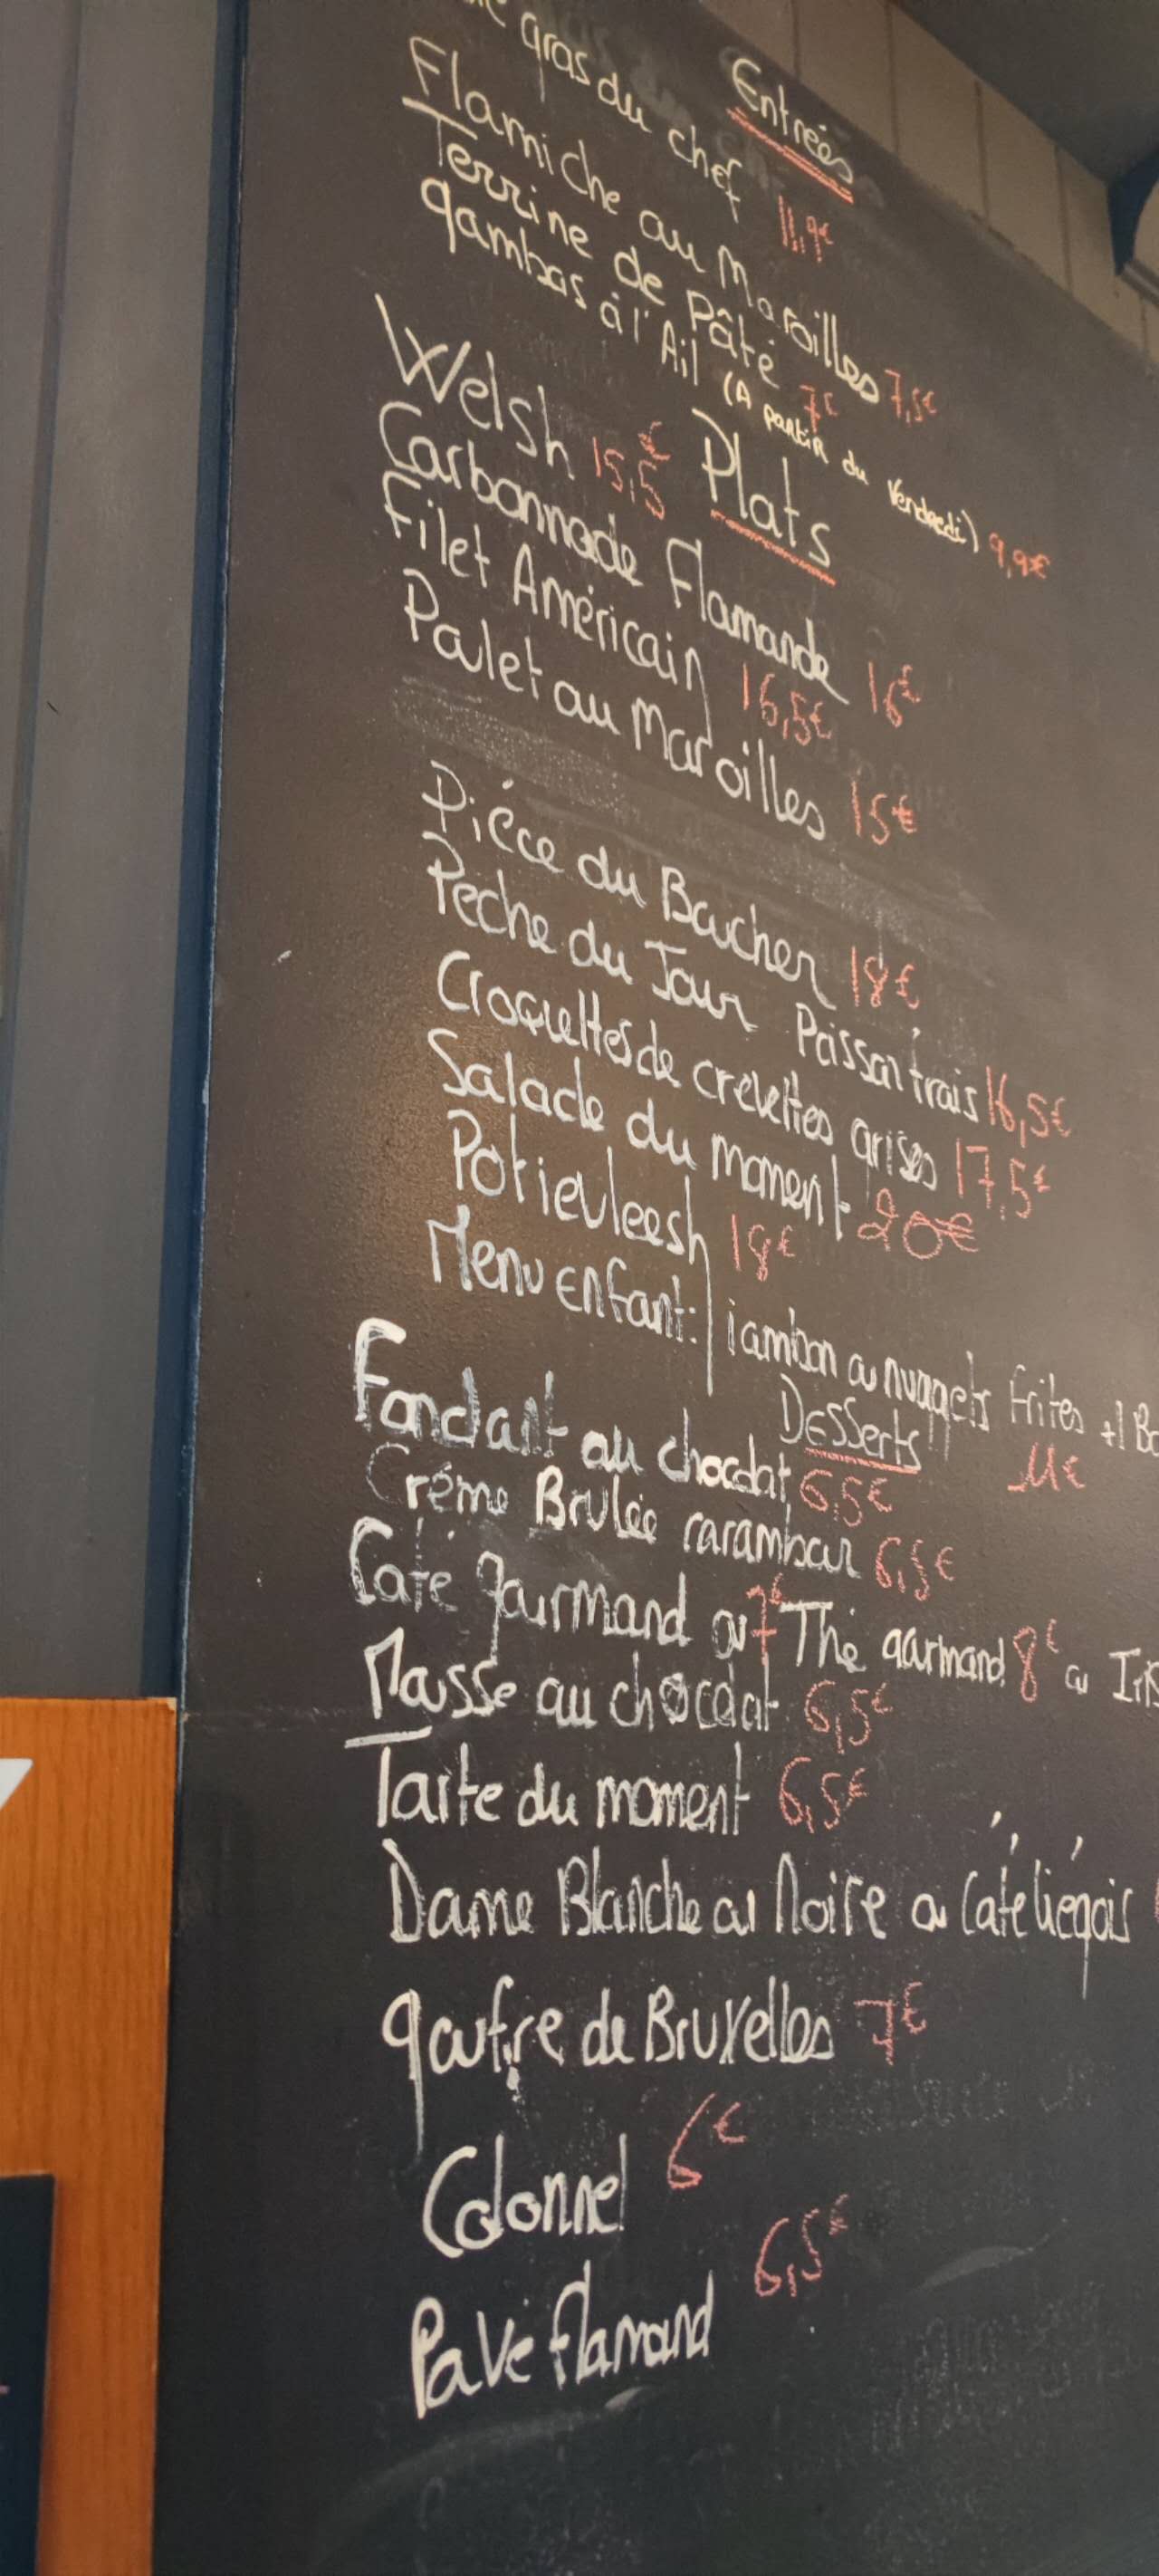 Entrées
gras du chef 11,9€
Flamiche au Maroilles 7,5€
Terrine de Pâté 7€
gambas à l'Ail (A partir du Vendredi) 9,9€
Plats
Welsh 15,5€
Carbonnade Flamande 16€
Filet Américain 16,5€
Palet au Maroilles 15€
Piéce du Boucher 18€
Pêche du Jour Poisson frais 16,5€
Croquettes de crevettes grises 17,5€
Salade du moment 20€
Potjevleesh 18€
Menu Enfant: jambon ou nuggets frites +1
11€
Desserts
Fondant au chocolat 6,5€
Créme Brulée carambar 6,5€
Café gourmand 7€ ou Thé gourmand 8€ ou
Mousse au chocolat 6,5€
Tarte du moment 6,5€
Dame Blanche ou Noire ou Café liégois
gaufre de Bruxelles 7€
Colonnel 6€
Pavé flamand 6,5€